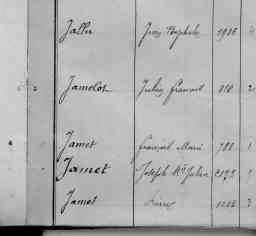 Jallu Jean Baptiste 1926
Jamelot Julien François 810 2
Jamet François Marie 788 1
Jamet Joseph Mie Julien 2095
Jamet Pierre 1208 3